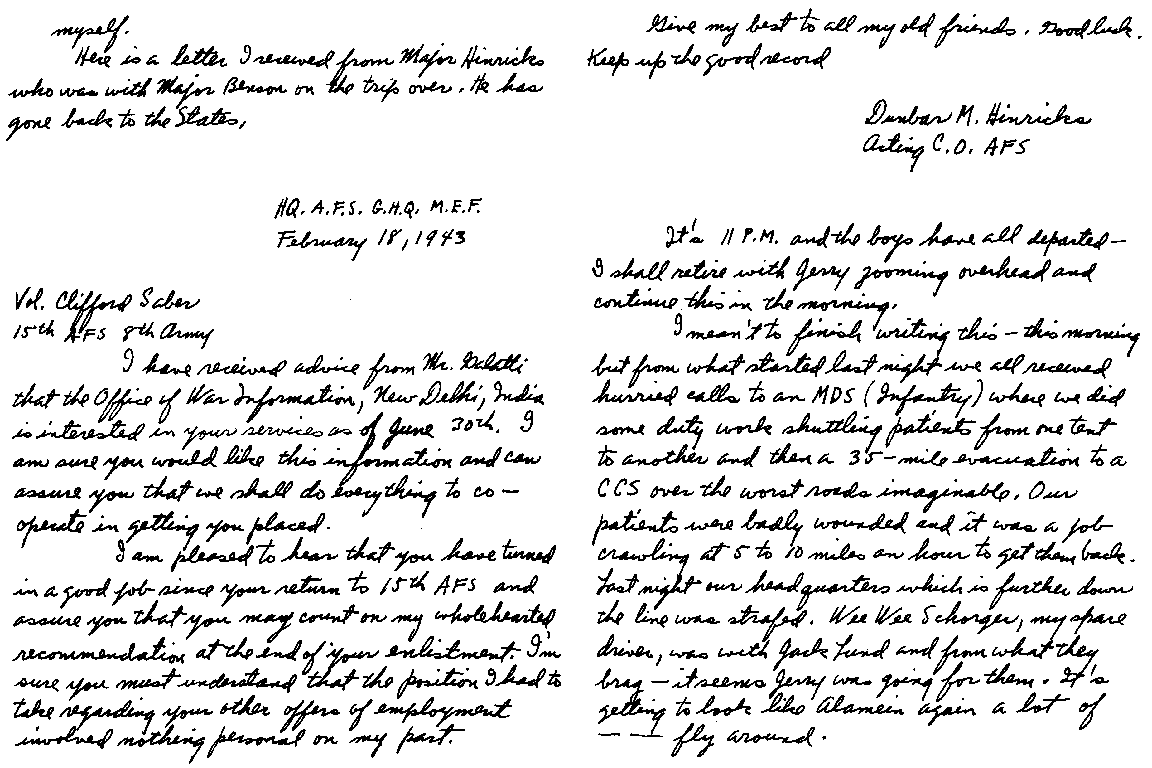 myself.
Here is a letter I received from Major Hinricks
who was with Major Benson on the trip over. He has
gone back to the States,
HQ. A.F.S. G.H.Q. M.E.F.
February 18, 1943
Vol. Clifford Saber
15th AFS 8th Army
I have received advice from Mr.
that the Office of War Information, New Delhi, India
is interested in your services as of June 30th. I
am sure you would like this information and can
assure you that we shall do everything to co-
operate in getting you placed.
I am pleased to hear that you have turned
in a good job since your return to 15th AFS and
assure you that you may count on my wholehearted
recommendation at the end of your enlistment. I'm
sure you must understand that the position I had to
take regarding your other offers of employment
involved nothing personal on my part.
Give my best to all my old friends. Good luck.
Keep up the good record
Dunbar M. Hinricks
Acting C.O. AFS
It's 11 P.M. and the boys have all departed—
I shall retire with Jerry zooming overhead and
continue this in the morning.
I mean't to finish writing this — this morning
but from what started last night we all received
hurried calls to an MDS (Infantry) where we did
some duty work shuttling patients from one tent
to another and then a 35-mile evacuation to a
CCS over the worst roads imaginable. Our
patients were badly wounded and it was a job
crawling at 5 to 10 miles an hour to get them back.
Last night our headquarters which is further down
the line was strafed. Wee Wee Schorger, my spare
driver, was with Jack Lund and from what they
brag — it seems Jerry was going for them. It's
getting to look like Alamein again a lot of
— — fly around.